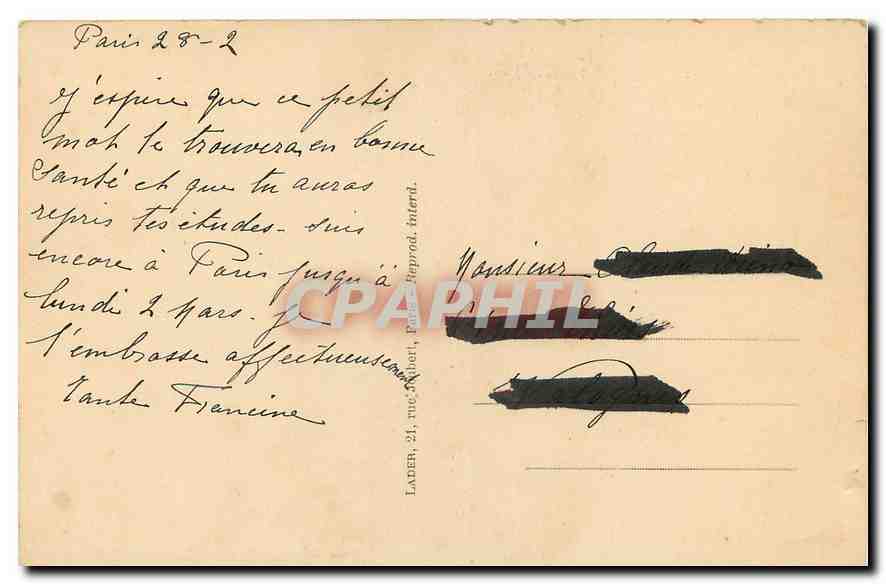 Paris 28-2
J'espère que ce petit
mot te trouvera en bonne
Santé et que tu auras
repris tes études - suis
encore à Paris jusqu'à
lundi 2 Mars - je
t'embrasse affectueusement
Tante Francine
LADER, 21, rue Joubert, Paris - Reprod. interd.
Monsieur
CPAPHIL